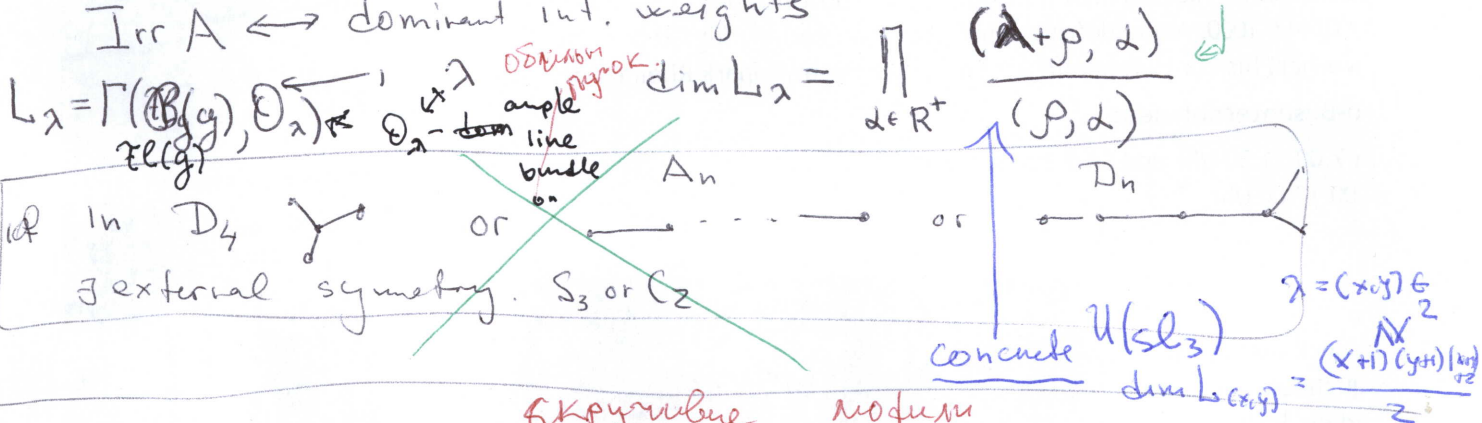 Irr A ↔ dominant int. weights
L_λ = Γ(B(g), O_λ)
Fl(g)
O_λ - ample
line
bundle
on
λ
dim L_λ = ∏_{α∈R⁺} (λ+ρ, α) / (ρ, α)
if in D₄ or A_n or D_n
∃ external symmetry. S₃ or C₂
concrete U(sl₃)
λ = (x,y) ∈ ℕ²
dim L_(x,y) = (x+1)(y+1)(x+y+2) / 2
модули